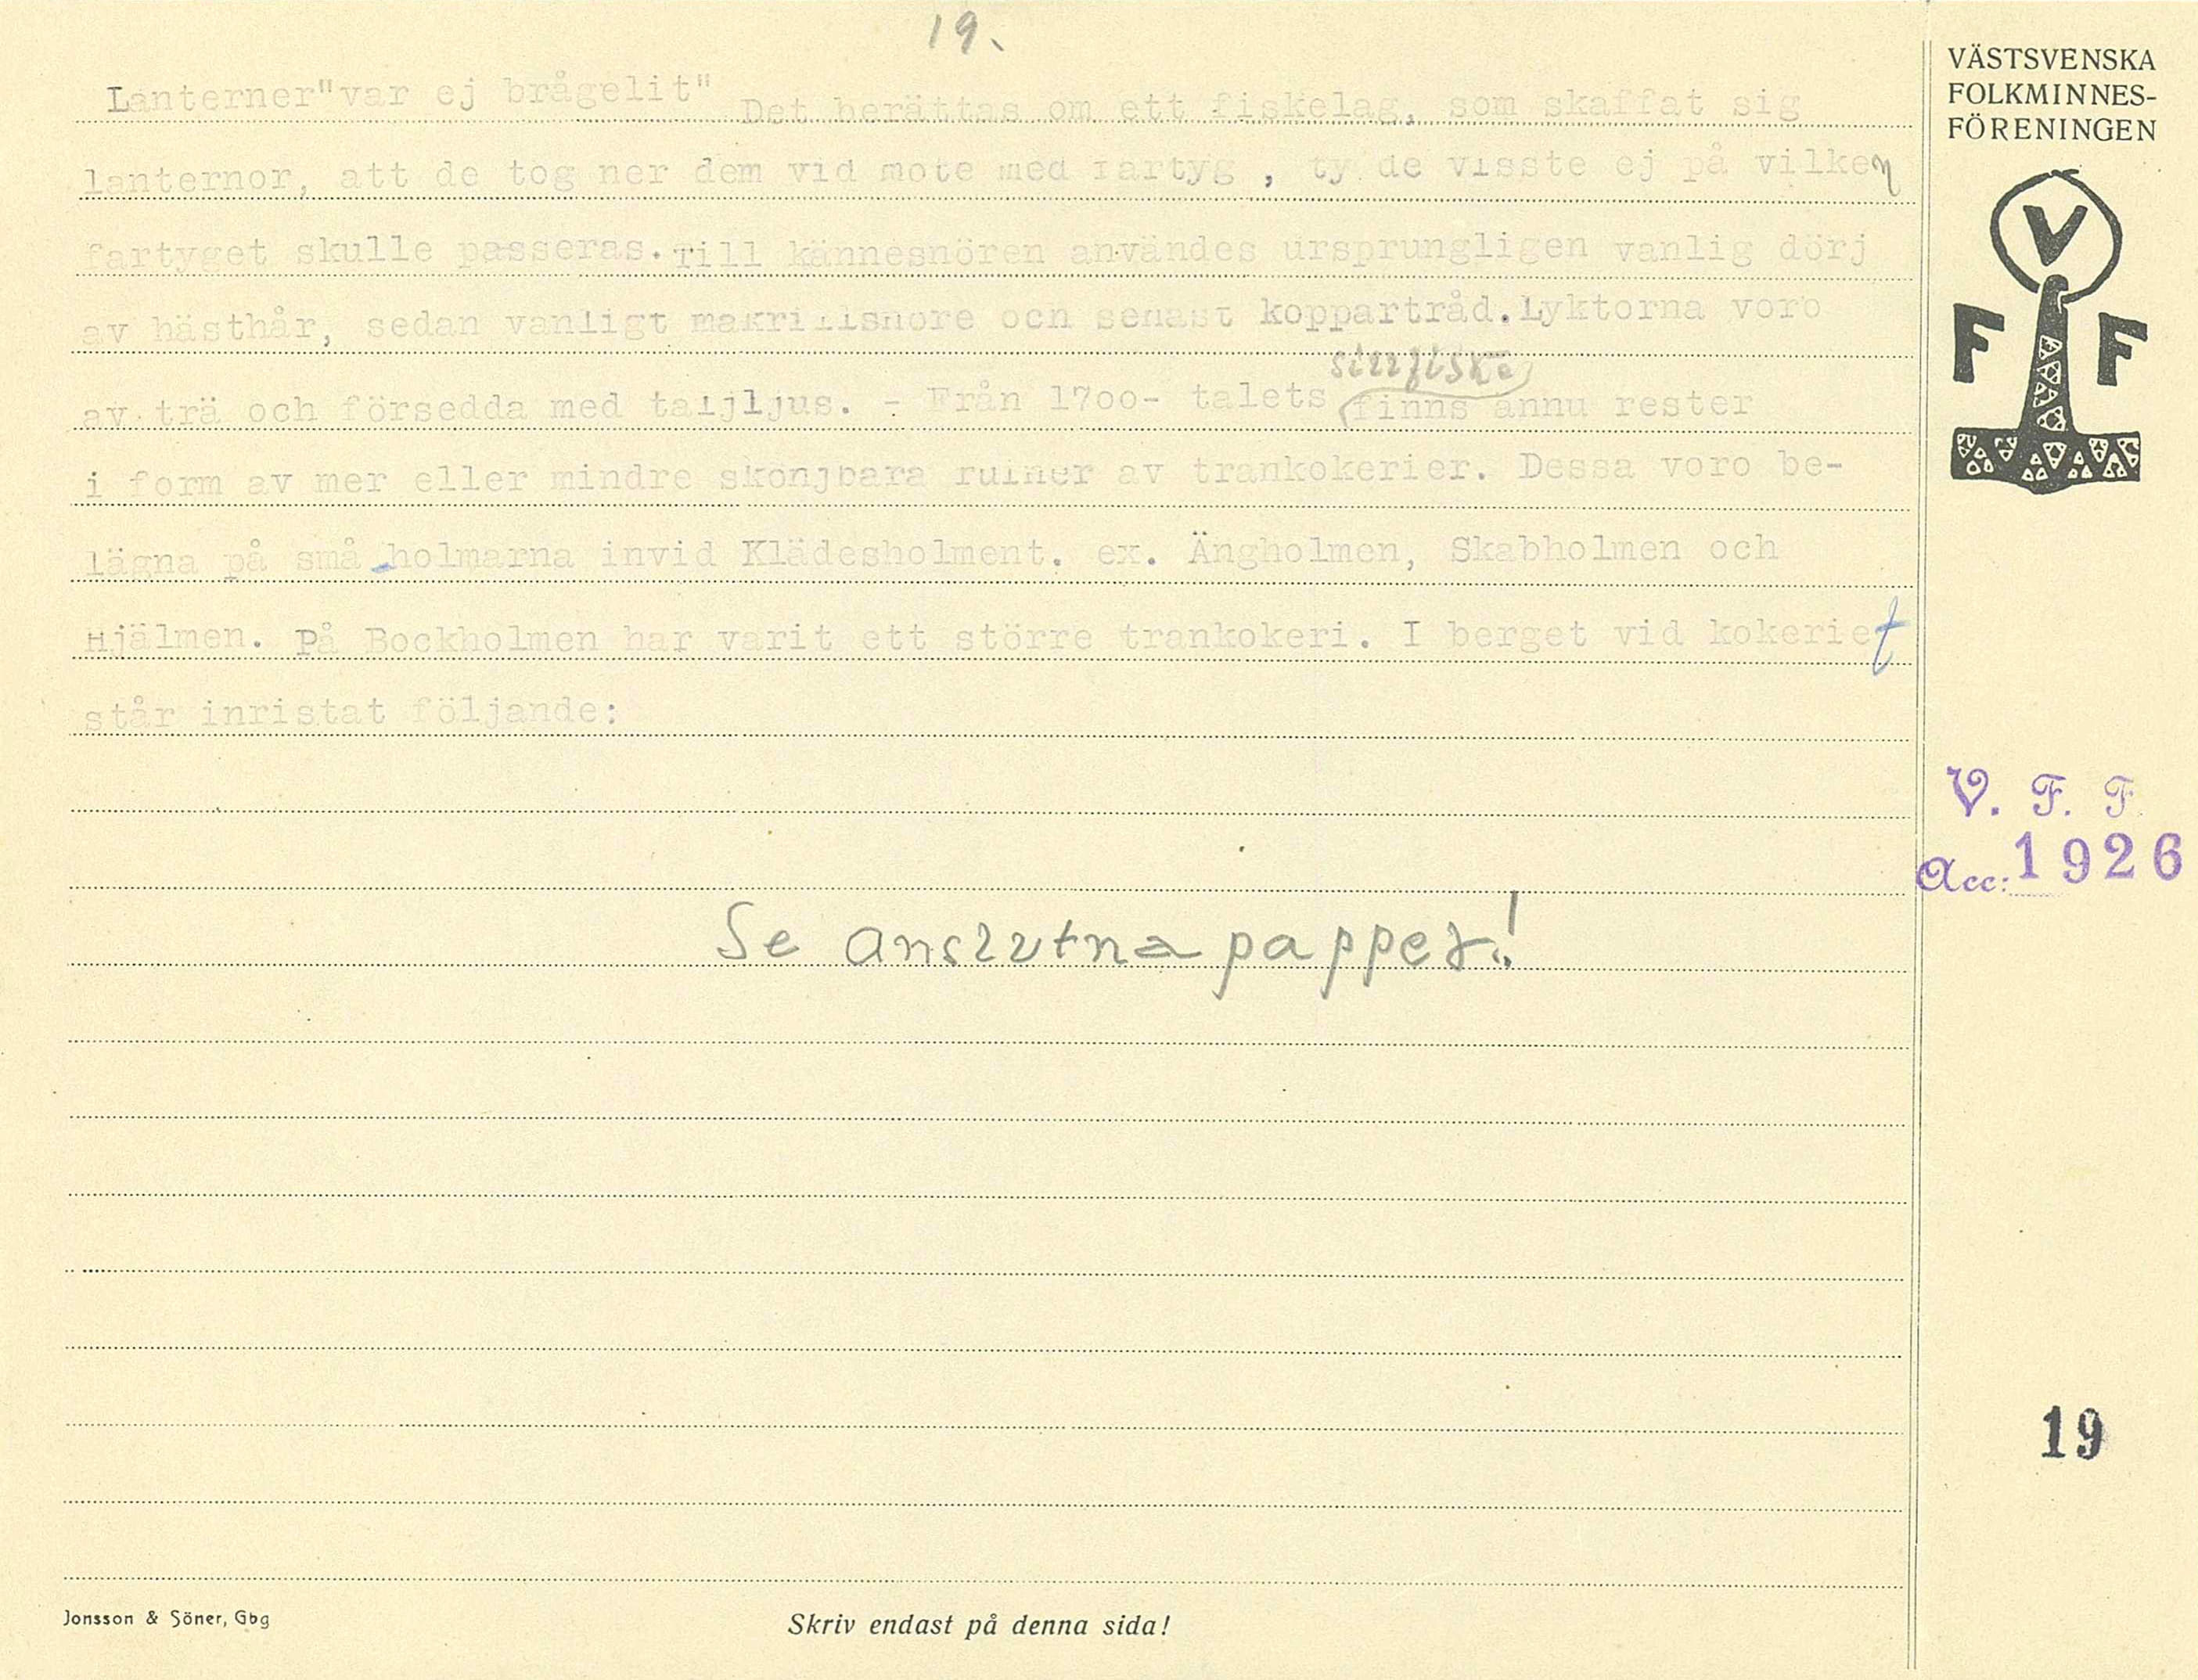 19.
Lanterner"var ej brågelit" Det berättas om ett fiskelag, som skaffat sig
lanternor, att de tog ner dem vid möte med fartyg , ty de visste ej på vilken
fartyget skulle passeras. Till kännesnören användes ursprungligen vanlig dörj
av hästhår, sedan vanligt makrillsnöre och senast koppartråd. Lyktorna voro
sillfiske
av trä och försedda med taljljus. - Från 1700- talets finns ännu rester
i form av mer eller mindre skönjbara ruiner av trankokerier. Dessa voro be-
lägna på små holmarna invid Klädesholment. ex. Ängholmen, Skabholmen och
Hjälmen. På Bockholmen har varit ett större trankokeri. I berget vid kokeriet
står inristat följande:
Se anslutna papper!
Jonsson & Söner, Gbg
Skriv endast på denna sida!
VÄSTSVENSKA
FOLKMINNES-
FÖRENINGEN
V
F F
V. F. F.
Acc: 1926
19